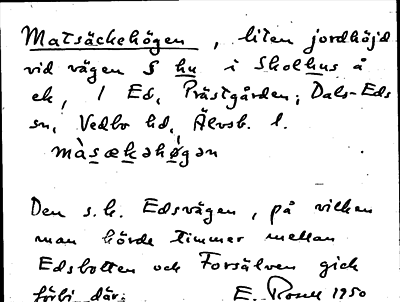 Matsäckehögen, liten jordhöjd
vid vägen S hu i Skolhus å
ek, 1 Ed, Prästgården; Dals-Eds
sn, Vedbo hd, Älvsb. l.
màsækəhø̀gən
Den s.k. Edsvägen, på vilken
man körde timmer mellan
Edsbotten och Forsälven gick
förbi där. E. Rosell 1950